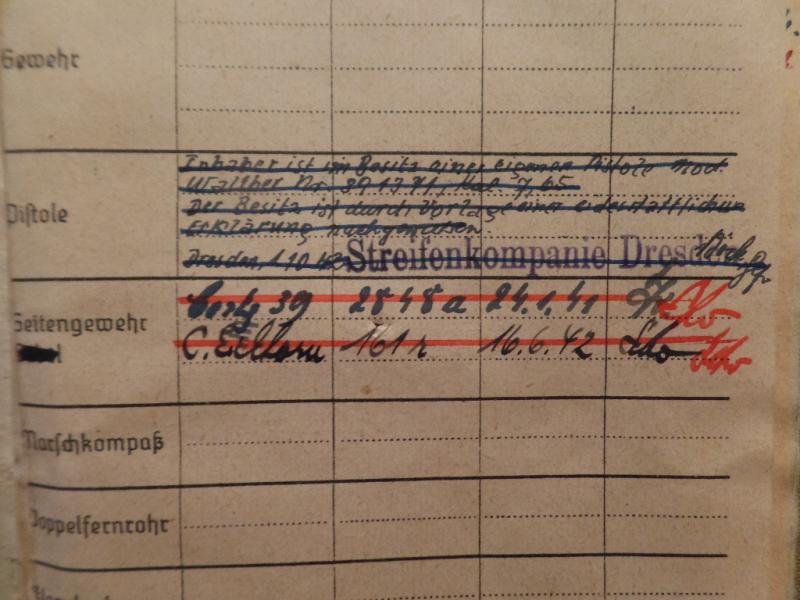 Gewehr
Inhaber ist im Besitz einer eigenen Pistole Mod.
Walther Nr. 391371, Kal. 7,65
Der Besitz ist durch Vorlage einer eidesstattlichen
Erklärung nachgewiesen.
Pistole
Dresden, 1 10 42 Streifenkompanie Dresden
39 2848a 24.1.41
Seitengewehr
C. Eickhorn 161r 16.6.42
Marschkompaß
Doppelfernrohr